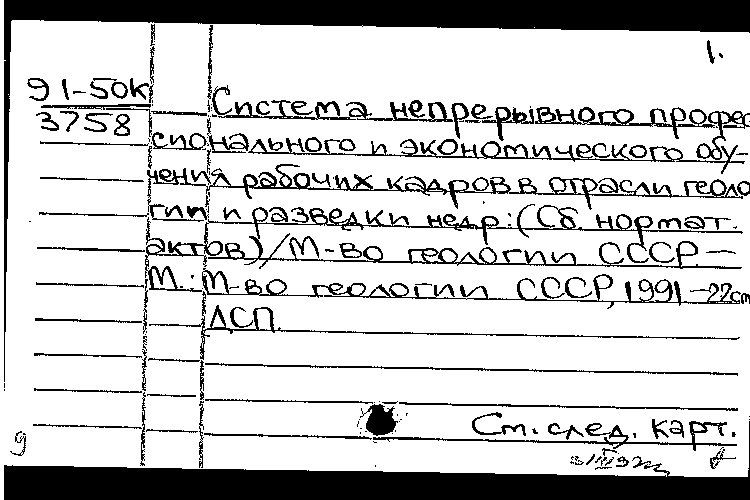 1.
91-50К
3758
Система непрерывного профес
сионального и экономического обу-
чения рабочих кадров в отрасли геоло
гии и разведки недр: (Сб. нормат.
актов) / М-во геологии СССР. —
М.: М-во геологии СССР, 1991 - 22 ст
ДСП.
Ст. след. карт.
9